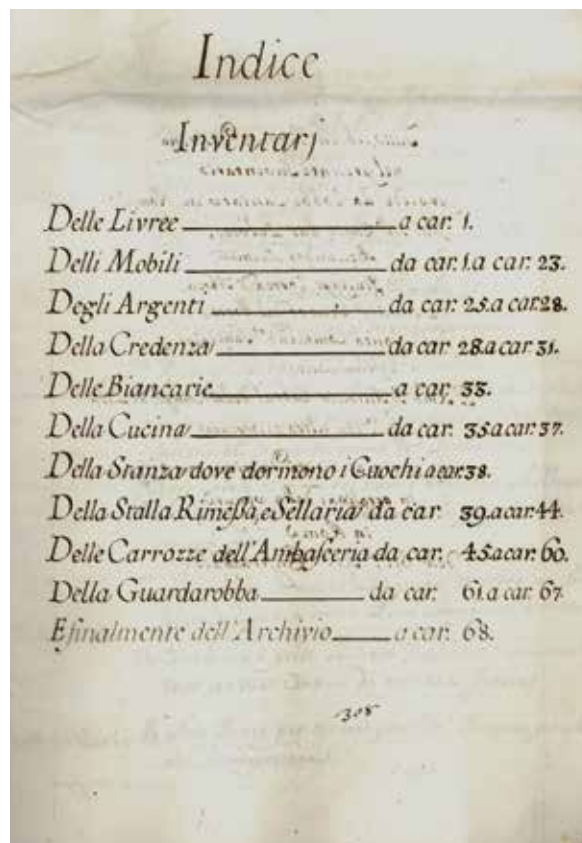 Indice
Inventarj
Delle Livree a car. 1.
Delli Mobili da car. 1. a car. 23.
Degli Argenti da car. 25. a car. 28.
Della Credenza da car. 28. a car. 31.
Delle Biancarie a car. 33.
Della Cucina da car. 35. a car. 37.
Della Stanza dove dormono i Cuochi a car. 38.
Della Stalla Rimessa, e Sellaria da car. 39. a car. 44.
Delle Carrozze dell'Ambasceria da car. 45. a car. 60.
Della Guardarobba da car. 61. a car. 67.
E finalmente dell'Archivio a car. 68.
308